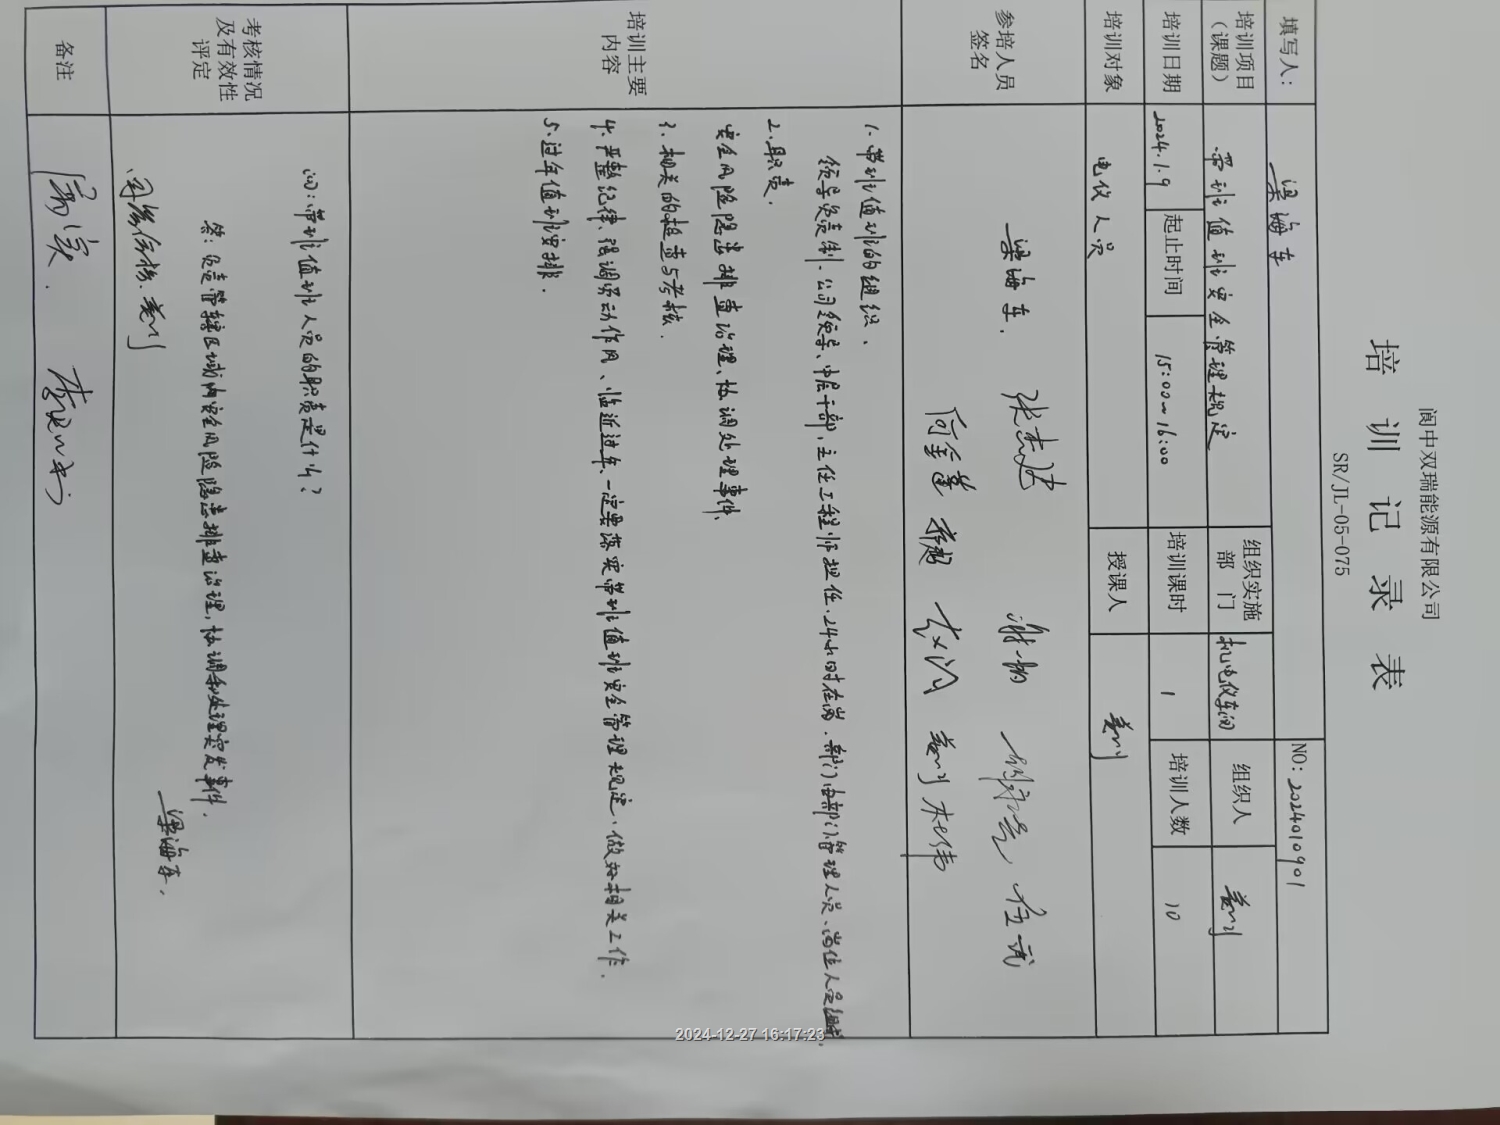 阆中双瑞能源有限公司
培训记录表
SR/JL-05-075
NO: 2024010901
填写人: 梁海车
培训项目（课题） 带班值班安全管理规定 组织实施部门 机电仪车间 组织人 姜川
培训日期 2024.1.9 起止时间 15:00~16:00 培训课时 1 培训人数 10
培训对象 电仪人员 授课人 姜川
参培人员签名 梁海车. 姜川
培训主要内容
1. 带班值班的组织.
领导负责制. 公司领导、中层干部, 主任工程师担任. 24小时在岗. 部门由部门管理人员、岗位人员组成.
2. 职责.
安全风险隐患排查治理、协调处理事件.
3. 相关的检查与考核.
4. 严整纪律、强调劳动作风、临近过年、一定要落实带班值班安全管理规定, 做好相关工作.
5. 过年值班安排.
考核情况及有效性评定
问: 带班值班人员的职责是什么?
答: 负责管辖区域内安全风险隐患排查治理, 协调和处理突发事件.
梁海车.
姜川
备注
2024-12-27 16:17:23